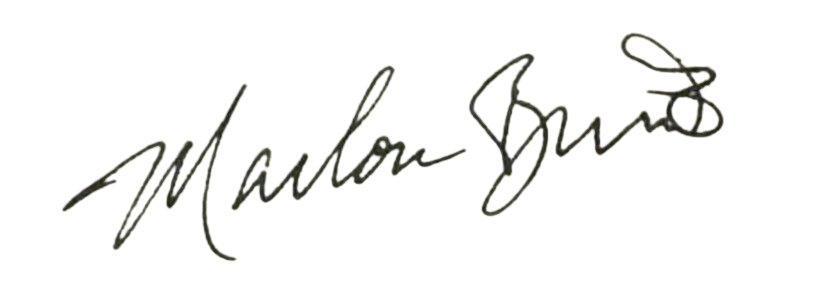 Marlon Brando